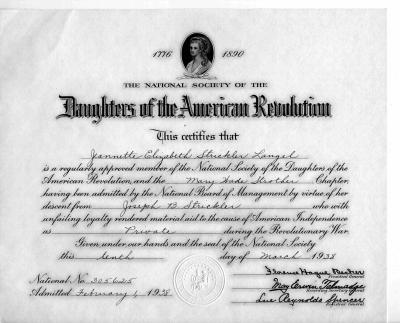 1776 1890
THE NATIONAL SOCIETY OF THE
Daughters of the American Revolution
This certifies that
Jeannette Elizabeth Strickler Langel
is a regularly approved member of the National Society of the Daughters of the
American Revolution, and the Mary Wade Strother Chapter,
having been admitted by the National Board of Management by virtue of her
descent from Joseph B Strickler who with
unfailing loyalty rendered material aid to the cause of American Independence
as Private during the Revolutionary War.
Given under our hands and the seal of the National Society
this tenth day of March 1938
National No. 305625
Admitted February 1, 1938
Florence Hague Becker
President General
May Erwin Talmadge
Recording Secretary General
Lue Reynolds Spencer
Registrar General